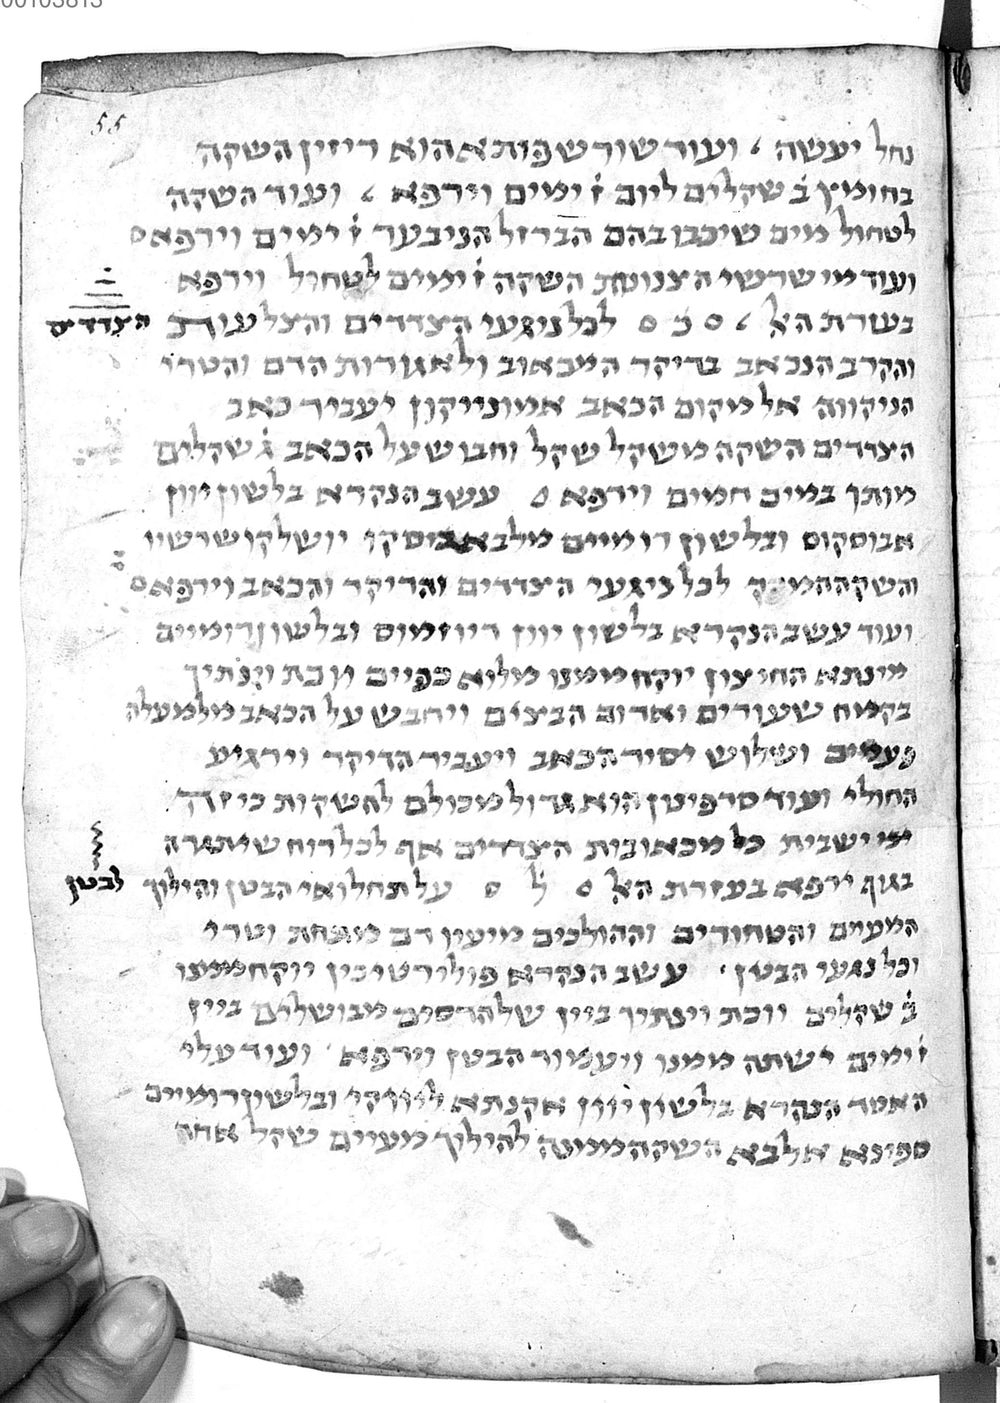 00103813
55
נחל יעשה ׳ ועוד שורש פותא הוא ריזין השקה
בחומץ ב׳ שקלים ליום ז׳ ימים וירפא ׳ ועוד השקה
לטחול מים שיכבו בהם הברזל הניבער ז׳ ימים וירפא ס
ועוד מי שרשי הצנונות השקה ז׳ ימים לטחול וירפא
בעזרת האל ס כ ס לכל ניגעי הצדדים והצלעות
הצדדים
והקרב הנכאב בדיקר המכאוב ולאגורות הדם והטרי
הניקווה אל מקום הכאב אמונייקון יעביר כאב
הצדדים השקה משקל שקל וחבוש על הכאב ג׳ שקלים
מותך במים חמים וירפא ס עשב הנקרא בלשון יוון
אבוסקוס ובלשון רומיים מלבא ביסקו יושלקו שרשיו
והשקה לכל ניגעי הצדדים והדיקר והכאב וירפא ס
ועוד עשב הנקרא בלשון יוון דיוזמוס ובלשון רומיים
מינתא החיצון יוקח ממנו מלוא כפיים ויוכת וינתיך
בקמח שעורים ואדום הבצים ויחבש על הכאב מלמעלה
פעמים ושלוש יסיר הכאב ויעביר הדיקר וירגיע
החולי ועוד סרפינון הוא גדול מכולם להשקות כי
ישבית כל מכאובות הצדדים אף לכל רוח שיתגרה
בגוף ירפא בעזרת האל ס ל ס על תחלואי הבטן והילוך
לבטן
המעים והטחורים וההולכים מיעין דם מתחת וטרי
וכל נגעי הבטן ׳ עשב הנקרא פוליו יוקח ממנו
ב׳ שקלים יוכת וינתיך ביין של הדסים מבושלים ביין
ז׳ ימים ישתה ממנו ויעמוד הבטן וירפא ׳ ועוד עלי
האטד הנקרא בלשון יוון אקנתא ובלשון רומיים
ספינא אלבא השקה ממנה להילוך מעיים שקל אחד